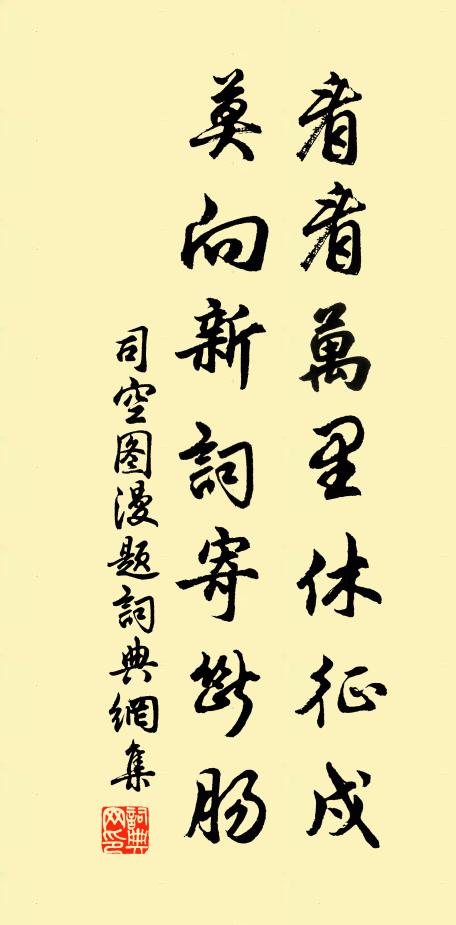 看看萬里休征戍
莫向新詞寄斷腸
司空图漫题詞典網集
詞典网印